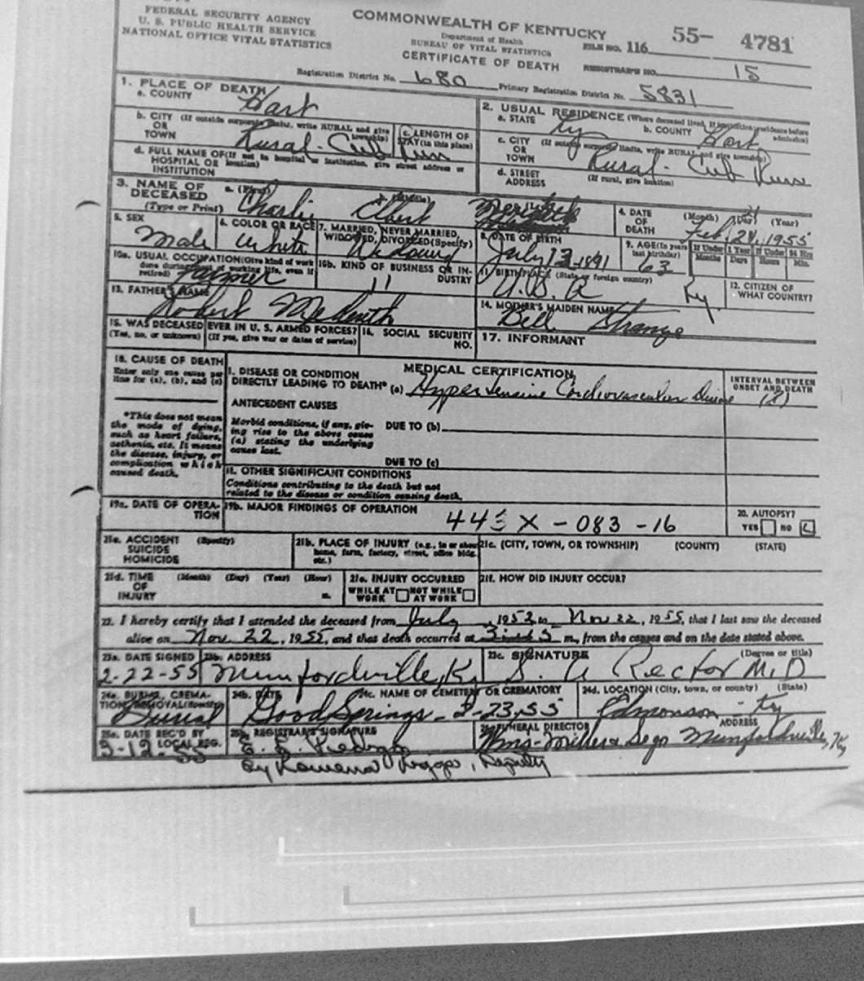 FEDERAL SECURITY AGENCY
U. S. PUBLIC HEALTH SERVICE
NATIONAL OFFICE VITAL STATISTICS
COMMONWEALTH OF KENTUCKY
Department of Health
BUREAU OF VITAL STATISTICS
CERTIFICATE OF DEATH
FILE NO. 116 55- 4781
REGISTRAR'S NO. 15
Registration District No. 680 Primary Registration District No. 5831
1. PLACE OF DEATH
a. COUNTY Hart
b. CITY (If outside corporate limits, write RURAL and give township)
OR
TOWN Rural - Cub Run
c. LENGTH OF
STAY (in this place)
d. FULL NAME OF (If not in hospital or institution, give street address or location)
HOSPITAL OR
INSTITUTION
2. USUAL RESIDENCE (Where deceased lived. If institution: residence before admission)
a. STATE Ky b. COUNTY Hart
c. CITY (If outside corporate limits, write RURAL and give township)
OR
TOWN Rural - Cub Run
d. STREET (If rural, give location)
ADDRESS
3. NAME OF DECEASED
(Type or Print)
a. (First) Charlie
Elbert
4. DATE OF DEATH (Month) (Day) (Year)
Feb 1955
5. SEX Male
6. COLOR OR RACE White
7. MARRIED, NEVER MARRIED, WIDOWED, DIVORCED (Specify)
8. DATE OF BIRTH July 13 1891
9. AGE (In years last birthday) 63
If Under 1 Year Months Days
If Under 24 Hrs Hours Min.
10a. USUAL OCCUPATION (Give kind of work done during most of working life, even if retired) Farmer
10b. KIND OF BUSINESS OR INDUSTRY
11. BIRTHPLACE (State or foreign country) U.S.A Ky.
12. CITIZEN OF WHAT COUNTRY?
13. FATHER'S NAME
Robert
14. MOTHER'S MAIDEN NAME
Bell Strange
15. WAS DECEASED EVER IN U. S. ARMED FORCES?
(Yes, no, or unknown) (If yes, give war or dates of service)
16. SOCIAL SECURITY NO.
17. INFORMANT
18. CAUSE OF DEATH
Enter only one cause per line for (a), (b), and (c)
MEDICAL CERTIFICATION
INTERVAL BETWEEN ONSET AND DEATH
I. DISEASE OR CONDITION
DIRECTLY LEADING TO DEATH* (a) Hypertensive Cardiovascular Disease
ANTECEDENT CAUSES
*This does not mean the mode of dying, such as heart failure, asthenia, etc. It means the disease, injury, or complication which caused death.
Morbid conditions, if any, giving rise to the above cause (a) stating the underlying cause last.
DUE TO (b)
DUE TO (c)
II. OTHER SIGNIFICANT CONDITIONS
Conditions contributing to the death but not related to the disease or condition causing death.
19a. DATE OF OPERATION
19b. MAJOR FINDINGS OF OPERATION
443 X - 083 - 16
20. AUTOPSY?
YES NO
21a. ACCIDENT (Specify)
SUICIDE
HOMICIDE
21b. PLACE OF INJURY (e.g., in or about home, farm, factory, street, office bldg., etc.)
21c. (CITY, TOWN, OR TOWNSHIP) (COUNTY) (STATE)
21d. TIME OF INJURY (Month) (Day) (Year) (Hour) m.
21e. INJURY OCCURRED
WHILE AT WORK NOT WHILE AT WORK
21f. HOW DID INJURY OCCUR?
22. I hereby certify that I attended the deceased from July, 1952 to Nov 22, 1955, that I last saw the deceased
alive on Nov. 22, 1955, and that death occurred at m., from the causes and on the date stated above.
23a. DATE SIGNED 2-22-55
23b. ADDRESS Munfordville, Ky
23c. SIGNATURE (Degree or title) S. A Rector M.D
24a. BURIAL, CREMATION, REMOVAL (Specify) Burial
24b. DATE
24c. NAME OF CEMETERY OR CREMATORY
Good Springs - 2-23,55
24d. LOCATION (City, town, or county) (State)
Edmonson - Ky
25a. DATE REC'D BY LOCAL REG. 3-12-55
25b. REGISTRAR'S SIGNATURE
Deputy
26. FUNERAL DIRECTOR ADDRESS
Munfordville, Ky